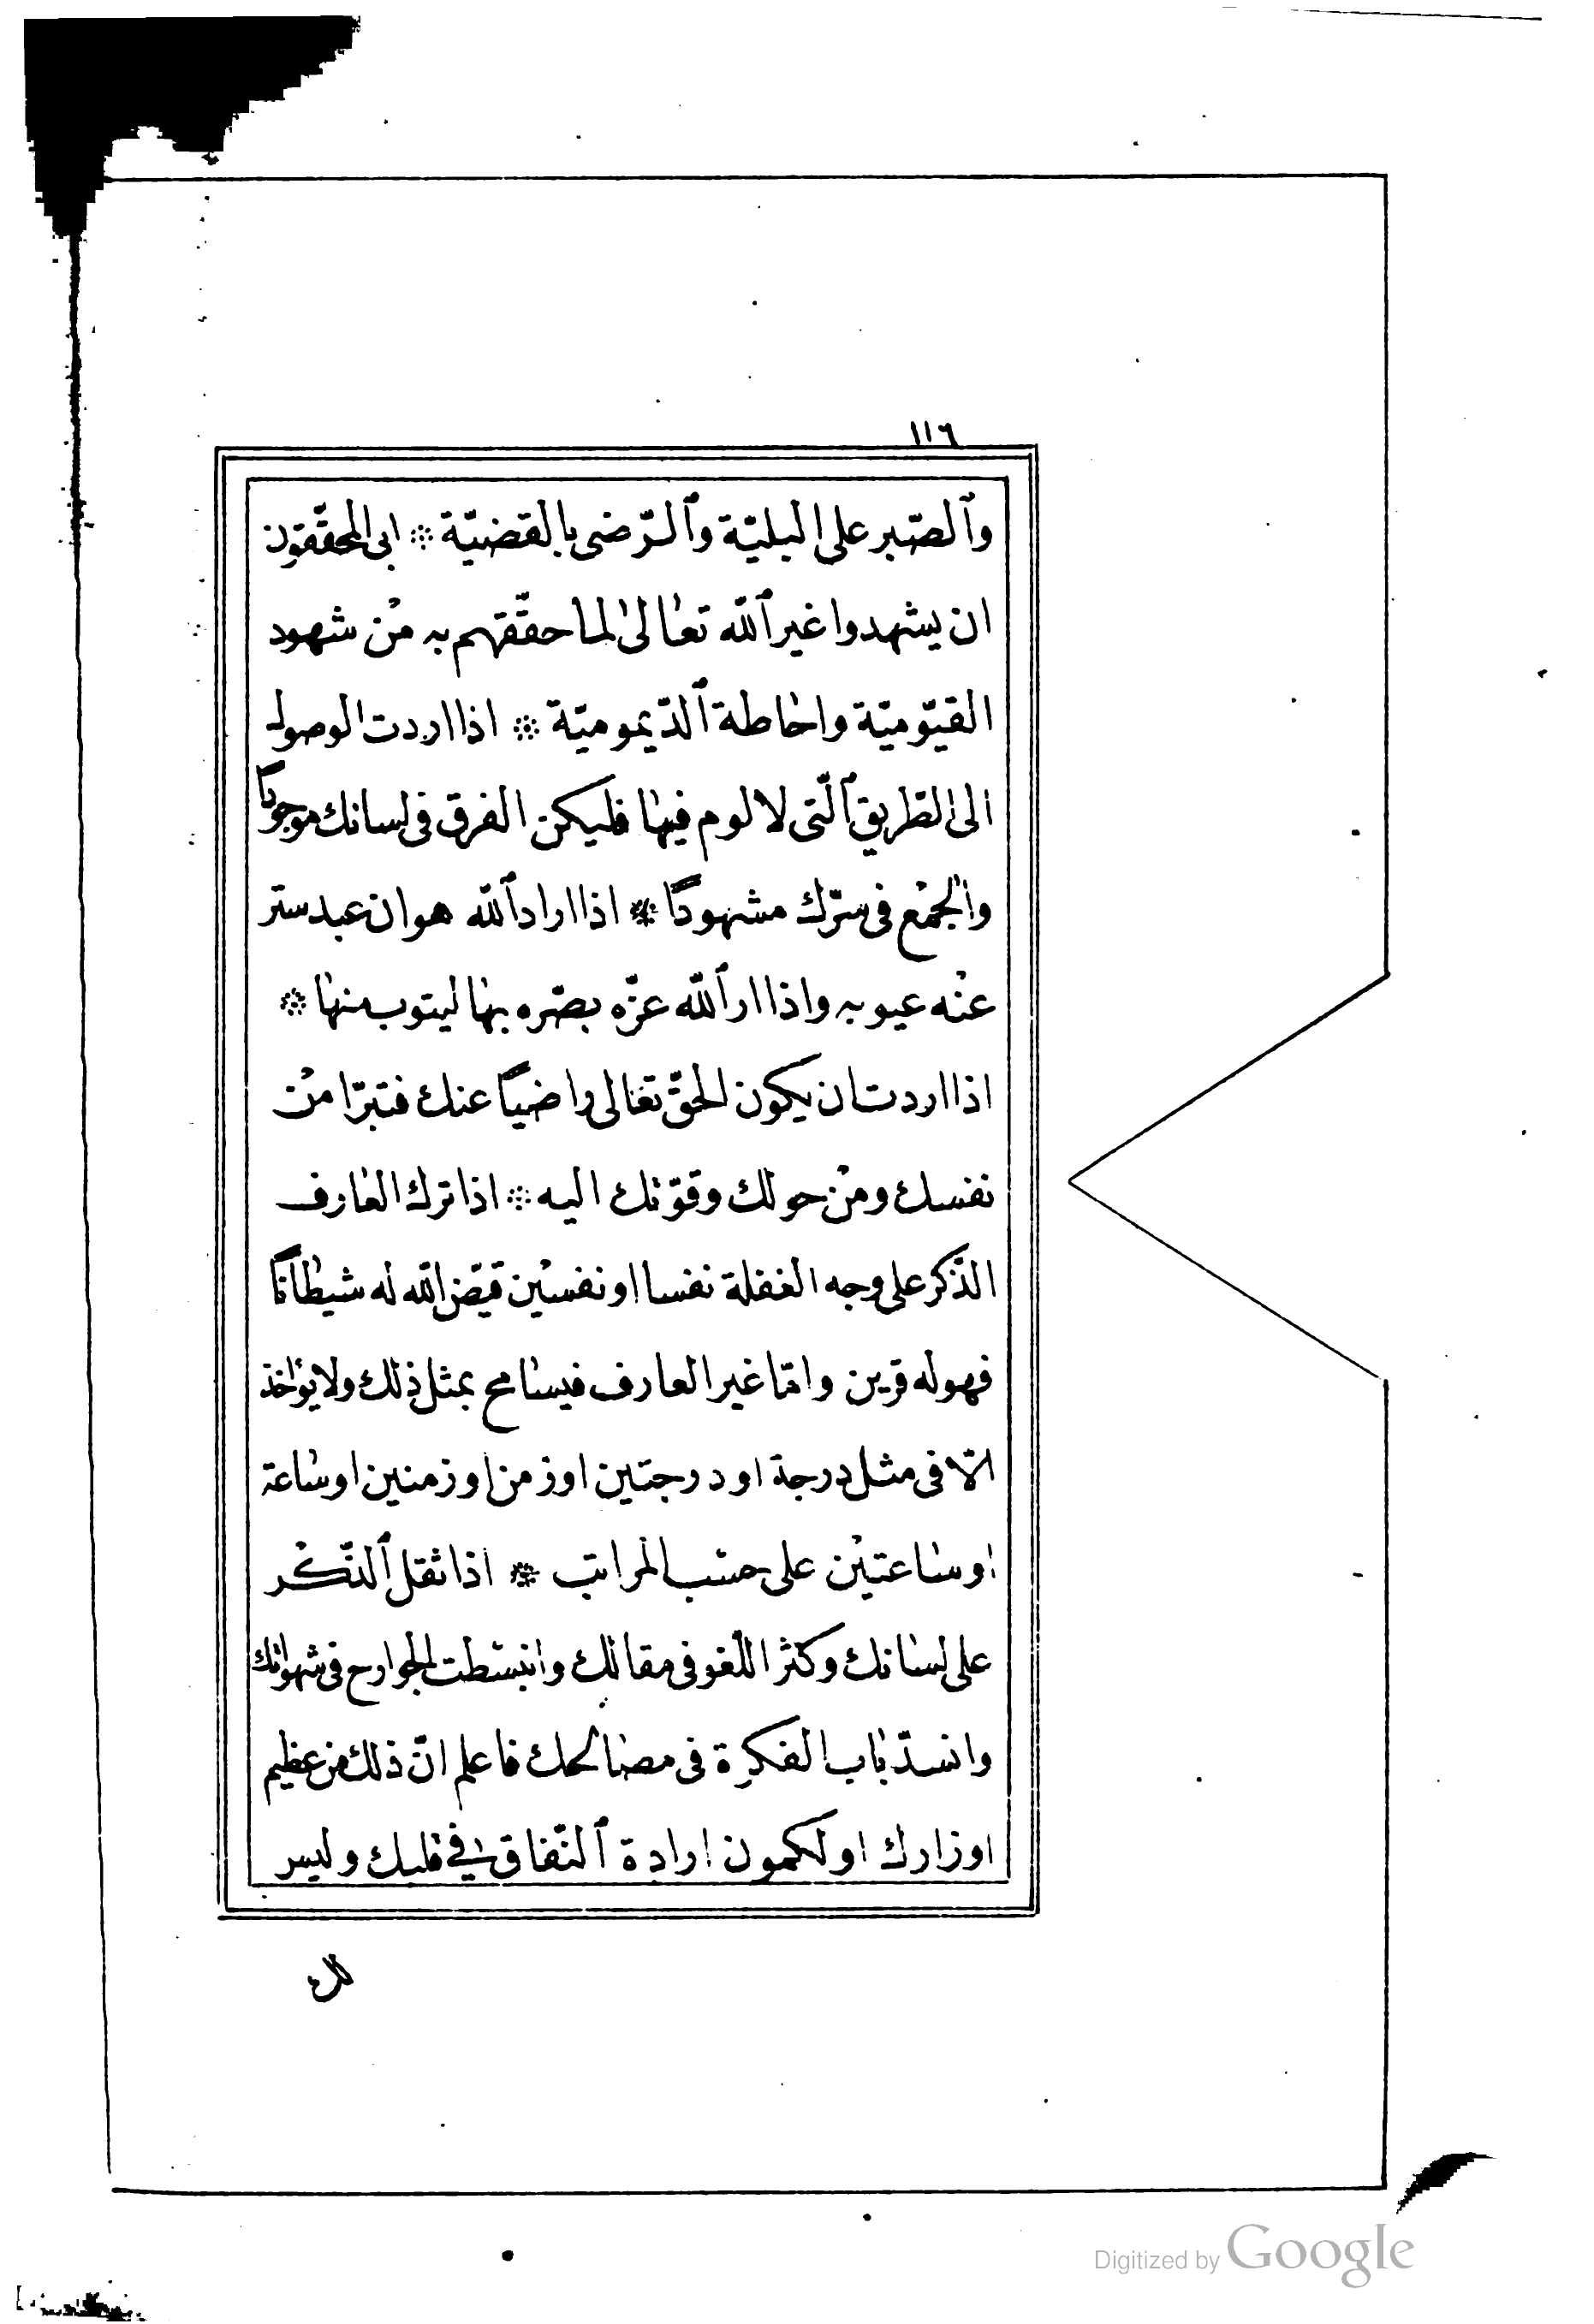 ١١٦
وٱلصّبر على البليّة وٱلرّضى بالقضيّة ۞ ابى المحقّقون
ان يشهدوا غير ٱللّه تعالىٰ لما حقّقهم به منْ شهود
القيّوميّة واحاطة ٱلدّيموميّة ۞ اذا اردت الوصول
الى الطّريق ٱلّتى لا لوم فيها فليكن الفرق فى لسانك موجودًا
والجمْع فى سرّك مشهودًا ۞ اذا اراد ٱللّه هوان عبد ستر
عنْه عيوبه واذا ار ٱللّه عزّه بصّره بها ليتوب منها ۞
اذا اردت ان يكون الحقّ تعالى راضيًا عنك فتبرّا منْ
نفسك ومنْ حولك وقوّتك اليه ۞ اذا ترك العارف
الذّكر على وجه الغفلة نفسا او نفسيْن قيّض اللّه له شيطانًا
فهو له قرين وامّا غير العارف فيسامح بمثل ذلك ولا يؤاخذ
الّا فى مثل درجة او درجتين او زمن او زمنين او ساعة
او ساعتيْن على حسب المراتب ۞ اذا ثقل ٱلذّكْر
على لسانك وكثر اللّغو فى مقالك وانبسطت الجوارح فى شهواتك
وانسدّ باب الفكرة فى مصالحك فاعلم انّ ذلك من عظيم
اوزارك او لكمون ارادة ٱلنّفاق فى قلبك وليس
لك
Digitized by Google